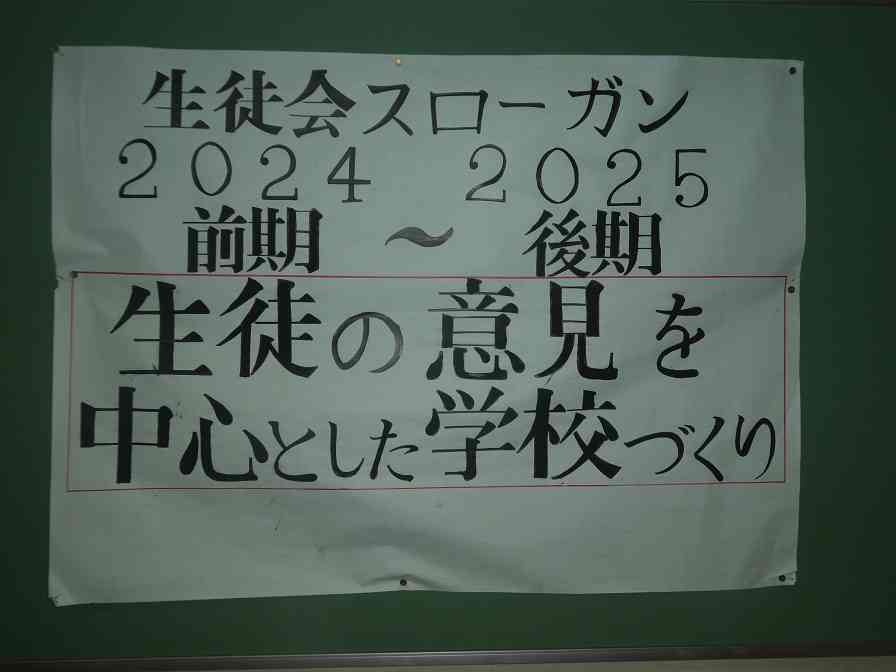 生徒会スローガン
２０２４　２０２５
前期　～　後期
生徒の意見を
中心とした学校づくり